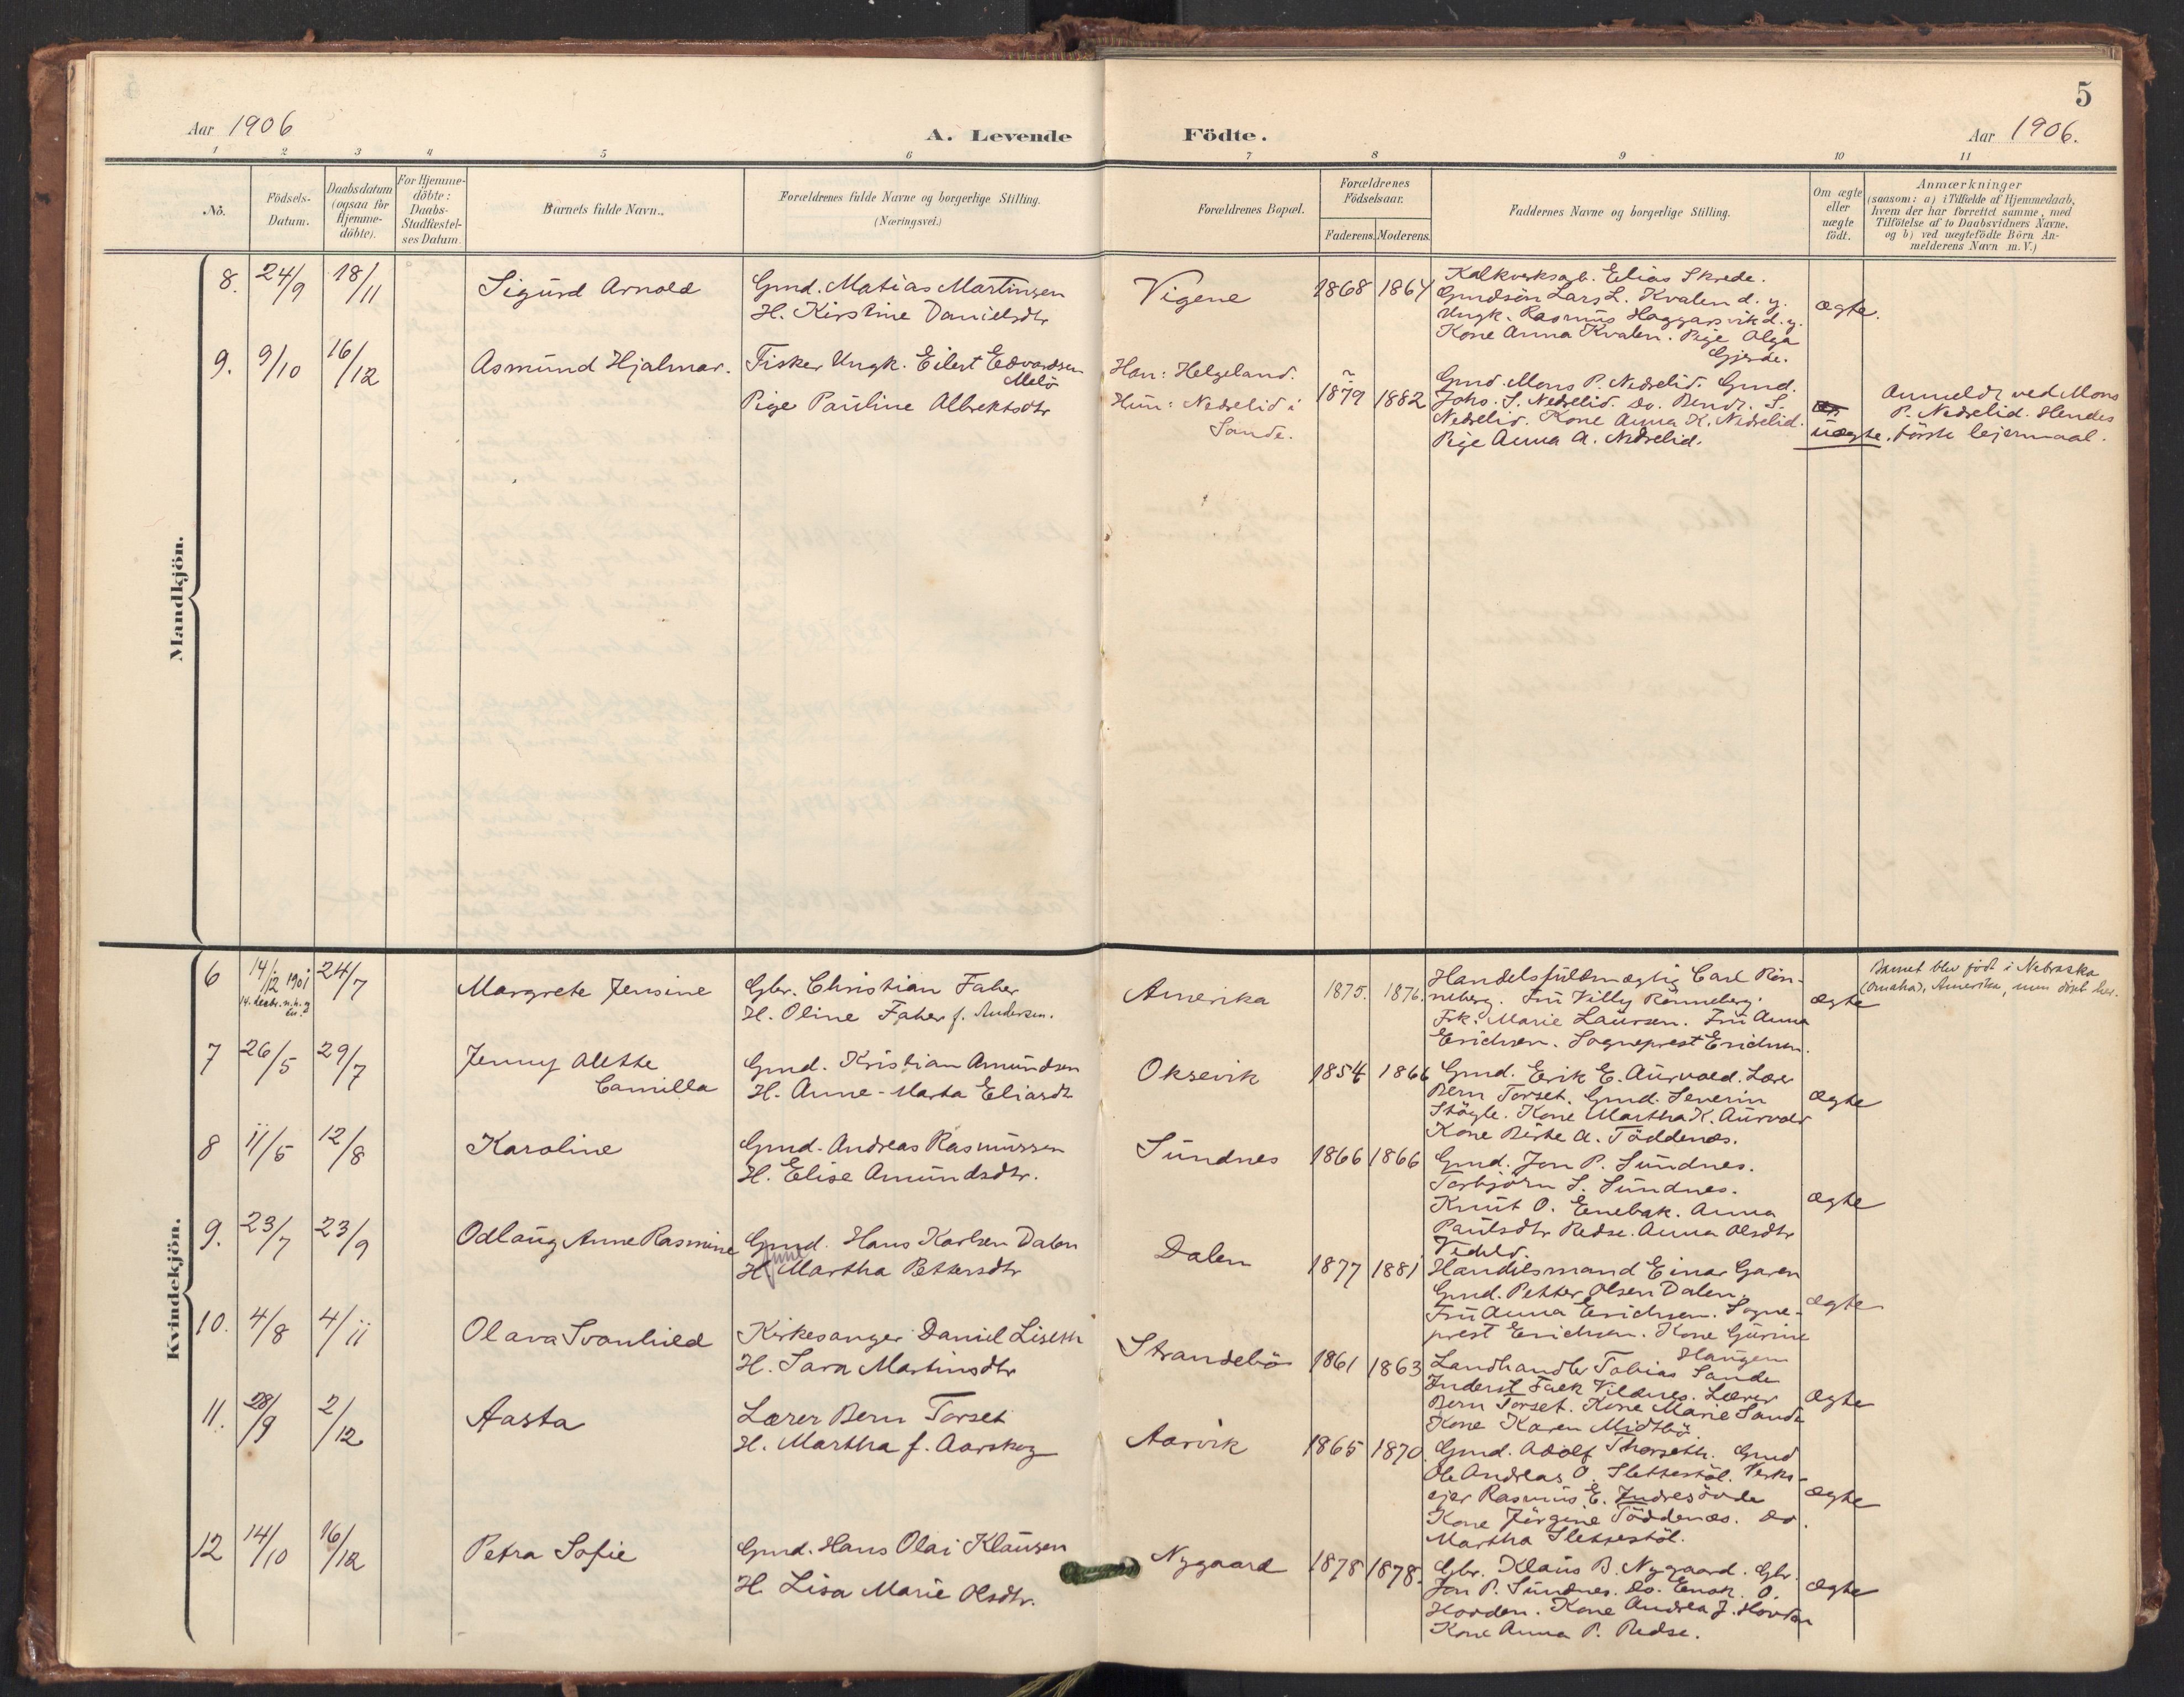 5
Aar 1906
A. Levende Födte.
Aar 1906.
1 2 3 4 5 6 7 8 9 10 11
No.
Födsels-Datum.
Daabsdatum (ogsaa for Hjemme-döbte).
For Hjemme-döbte: Daabs-Stadfæstel-ses Datum.
Barnets fulde Navn.
Forældrenes fulde Navne og borgerlige Stilling.
(Næringsvei.)
Forældrenes Bopæl.
Forældrenes Födselsaar.
Faderens. Moderens.
Faddernes Navne og borgerlige Stilling.
Om ægte eller uægte födt.
Anmærkninger
(saasom: a) i Tilfælde af Hjemmedaab,
hvem der har forrettet samme, med
Tilföielse af to Daabsvidners Navne,
og b) ved uægtefödte Börn An-
melderens Navn m. V.)
Mandkjön.
8. 24/9 18/11 Sigurd Arnold
Gmd. Matias Martinsen
H. Kirstine Danielsdtr
Vigene 1868 1864
Kalkverksarb. Elias Skrede.
Gmdsön Lars L. Kvalen d. y.
Ungk. Rasmus Haggarsvik d. y.
Kone Anna Kvalen. Pige Olga
Gjerde.
ægte.
9. 9/10 16/12 Asmund Hjalmar.
Fisker Ungk. Eilert Edvardsen
Melö
Pige Pauline Albrektsdtr
Han: Helgeland.
Hun: Nedrelid i
Sande.
1879 1882
Gmd. Mons P. Nedrelid. Gmd.
Johs. S. Nedrelid. Do. Bendr. S.
Nedrelid. Kone Anna K. Nedrelid.
Pige Anna A. Nedrelid.
uægte.
Anmeldt ved Mons
P. Nedrelid. Hendes
förste lejermaal.
Kvindekjön.
6 14/12 1901 24/7 Margrete Jensine
Gbr. Christian Faher
H. Oline Faher f. Andersen.
Amerika 1875. 1876.
Handelsfuldmægtig Carl Rön-
neberg. Fru Villy Rönneberg.
Frk. Marie Laursen. Fru Anna
Erichsen. Sogneprest Erichsen.
ægte
Barnet blev födt i Nebraska
(Omaha), Amerika, men döbt her.
7 26/5 29/7 Jenny Alette
Camilla
Gmd. Kristian Amundsen
H. Anne-Marta Eliasdt
Oksevik 1854 1866
Gmd. Erik E. Aurvold. Lærer
Bern Torset. Gmd. Severin
Stögle. Kone Martha K. Aurvold
Kone Berte A. Töddenæs.
ægte
8 11/5 12/8 Karoline
Gmd. Andreas Rasmussen
H. Elise Amundsdtr.
Sundnes 1866 1866
Gmd. Jon P. Sundnes.
Torbjörn S. Sundnes.
Knut O. Enebak. Anna
Paulsdtr Redse. Anna Olsdtr
Vedeld.
ægte
9. 23/7 23/9 Odlaug Anne Rasmine
Gmd. Hans Karlsen Dalen
H. Martha Pettersdtr
Dalen 1877 1881
Handelsmand Einar Garen
Gmd. Petter Olsen Dalen.
Fru Anna Erichsen. Sogne-
prest Erichsen. Kone Gurine
Haugen
ægte
10. 4/8 4/11 Olava Svanhild
Kirkesanger Daniel Liseth
H. Sara Martinsdtr
Strandebö 1861 1863
Landhandler Tobias Sande
Inderst Falk Vildnes. Lærer
Bern Torset. Kone Marie Sande
Kone Karen Midtbö.
ægte
11. 28/9 2/12 Aasta
Lærer Bern Torset
H. Martha f. Aarskog
Aarvik 1865 1870
Gmd. Adolf Thorseth. Gmd
Ole Andreas O. Slettestöl. Verks-
ejer Rasmus E. Indresövde
Kone Jörgine Töddenæs. Do.
Martha Slettestöl.
ægte
12 14/10 16/12 Petra Sofie
Gmd. Hans Olai Klausen
H. Lisa Marie Olsdtr.
Nygaard 1878 1878.
Gbr. Klaus B. Nygaard. Gbr.
Jon P. Sundnes. Do. Enok O.
Hovden. Kone Andrea J. Hovden
Kone Anna P. Redse.
ægte